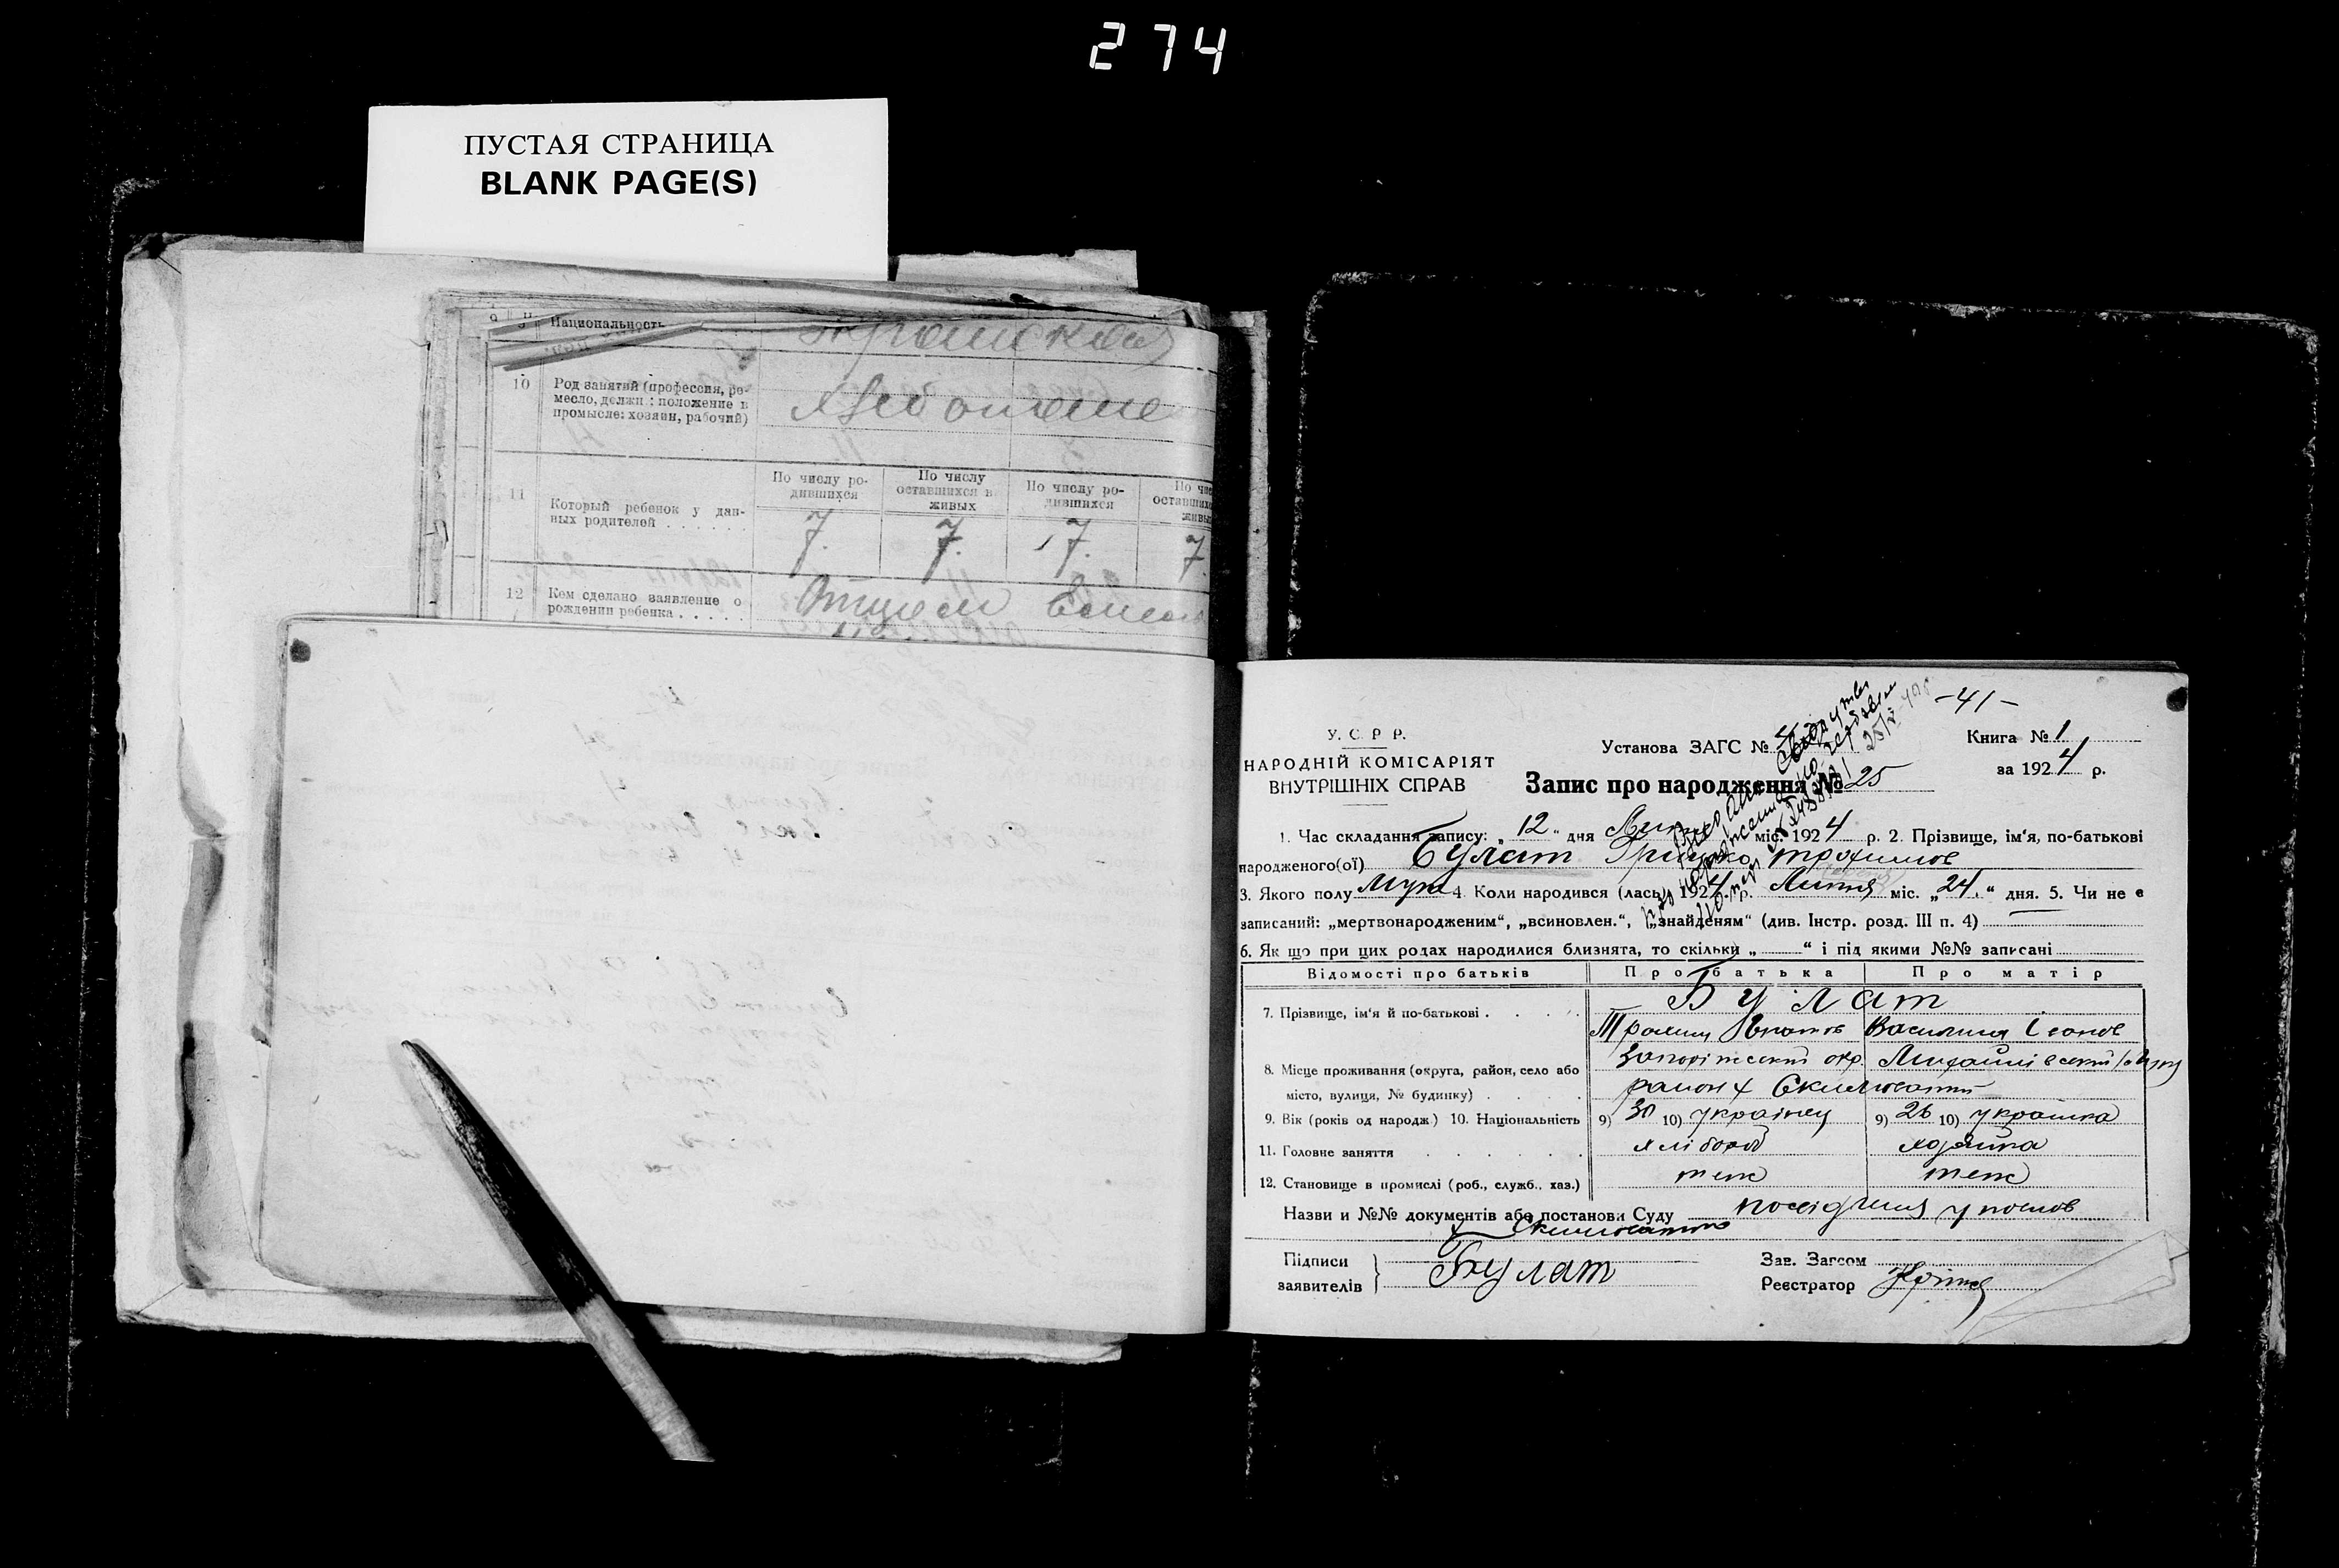 274
ПУСТАЯ СТРАНИЦА
BLANK PAGE(S)
Национальность
10 Род занятий (профессия, ре-
месло, должн: положение в
промысле: хозяин, рабочий)
11 Который ребенок у дан-
ных родителей
По числу ро-
дившихся
По числу
оставшихся в
живых
По числу ро-
дившихся
7. 7. 7. 7.
12 Кем сделано заявление о
рождении ребенка
Отцом
-41-
У. С. Р. Р.
НАРОДНІЙ КОМІСАРІЯТ
ВНУТРІШНІХ СПРАВ
Установа ЗАГС №
Книга № 1
за 1924 р.
Запис про народження № 25
1. Час складання запису: „12“ дня міс. 1924 р. 2. Прізвище, ім‘я, по-батькові
народженого(ої) Булат Грицько Трохимов
3. Якого полу муж 4. Коли народився (лась) 1924 р. Липня міс. „24.“ дня. 5. Чи не є
записаний: „мертвонародженим“, „всиновлен.“, „знайденям“ (див. Інстр. розд. III п. 4)
6. Як що при цих родах народилися близнята, то скільки „ “ і під якими №№ записані
Відомості про батьків Про батька Про матір
7. Прізвище, ім‘я й по-батькові
Булат
Трохим Василина
8. Місце проживання (округа, район, село або
місто, вулиця, № будинку)
район х
9. Вік (років од народж.) 10. Національність 9) 30 10) українец 9) 26 10) українка
11. Головне заняття хлібороб хозяйка
12. Становище в промислі (роб., служб., хаз.) теж теж
Назви и №№ документів або постанови Суду
Підписи
заявителів
Булат
Зав. Загсом
Реєстратор